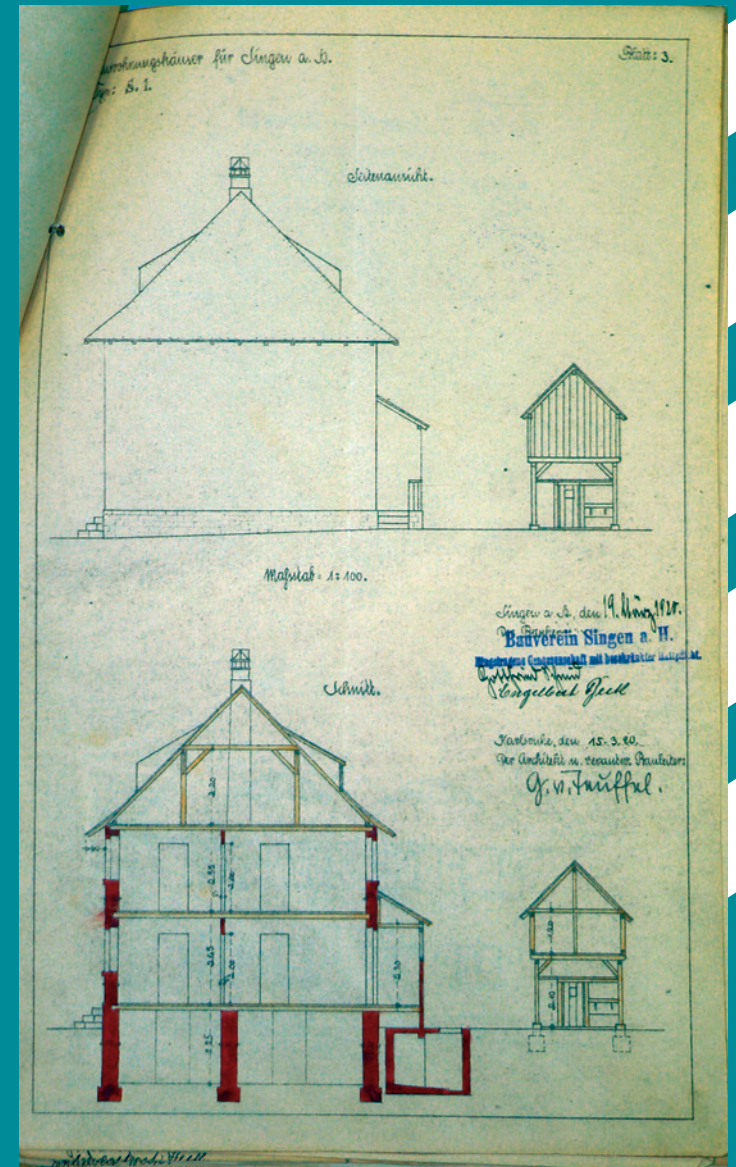 wohnungshäuser für Singen a. H.
Typ: S. 1.
Blatt: 3.
Seitenansicht.
Maßstab = 1:100.
Singen a. H., den 19. März 1920.
Der Bauherr:
Bauverein Singen a. H.
Eingetragene Genossenschaft mit beschränkter Haftpflicht.
Gottfried Schmid
Engelbert
Schnitt.
Karlsruhe, den 15. 3. 20.
Der Architekt u. verantw. Bauleiter:
G. v. Teuffel.
2.20
2.55
2.00
2.65
2.00
2.30
2.25
1.20
2.10